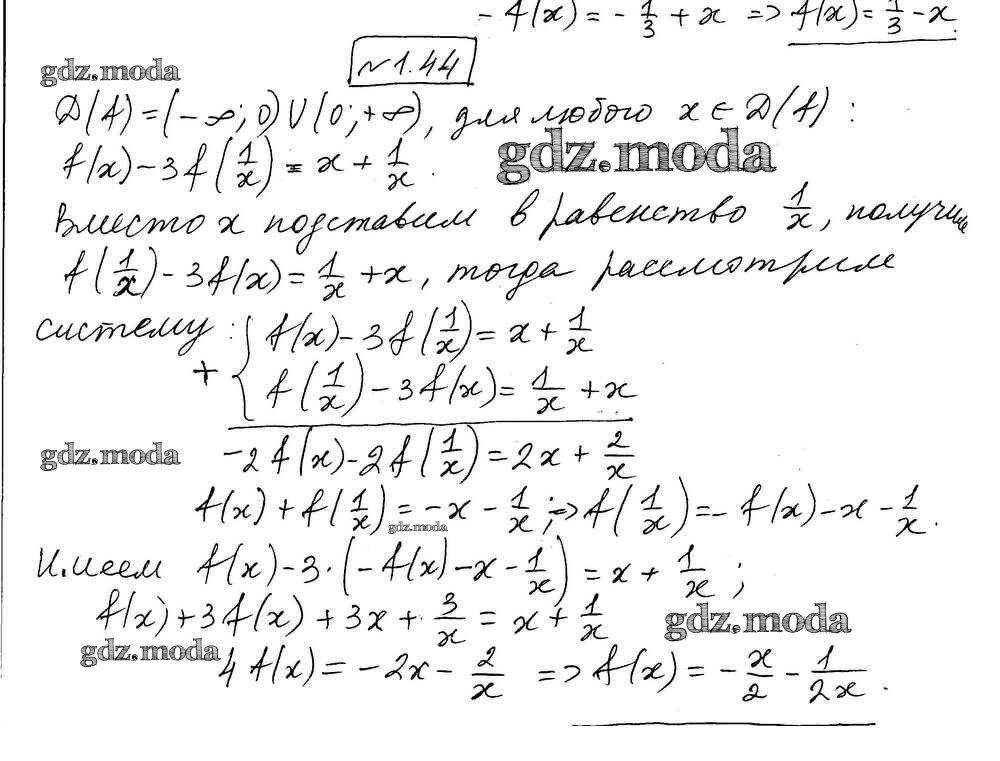 - f(x) = - 1/3 + x => f(x) = 1/3 - x.
№1.44
gdz.moda
D(f) = (-∞; 0) U (0; +∞), для любого x ∈ D(f) :
f(x) - 3f(1/x) = x + 1/x.
gdz.moda
Вместо x подставим в равенство 1/x, получим
f(1/x) - 3f(x) = 1/x + x, тогда рассмотрим
систему : { f(x) - 3f(1/x) = x + 1/x
+ { f(1/x) - 3f(x) = 1/x + x
gdz.moda
-2f(x) - 2f(1/x) = 2x + 2/x
f(x) + f(1/x) = -x - 1/x; => f(1/x) = - f(x) - x - 1/x.
gdz.moda
Имеем f(x) - 3·(-f(x) - x - 1/x) = x + 1/x ;
f(x) + 3f(x) + 3x + 3/x = x + 1/x
gdz.moda
gdz.moda
4f(x) = -2x - 2/x => f(x) = - x/2 - 1/2x.